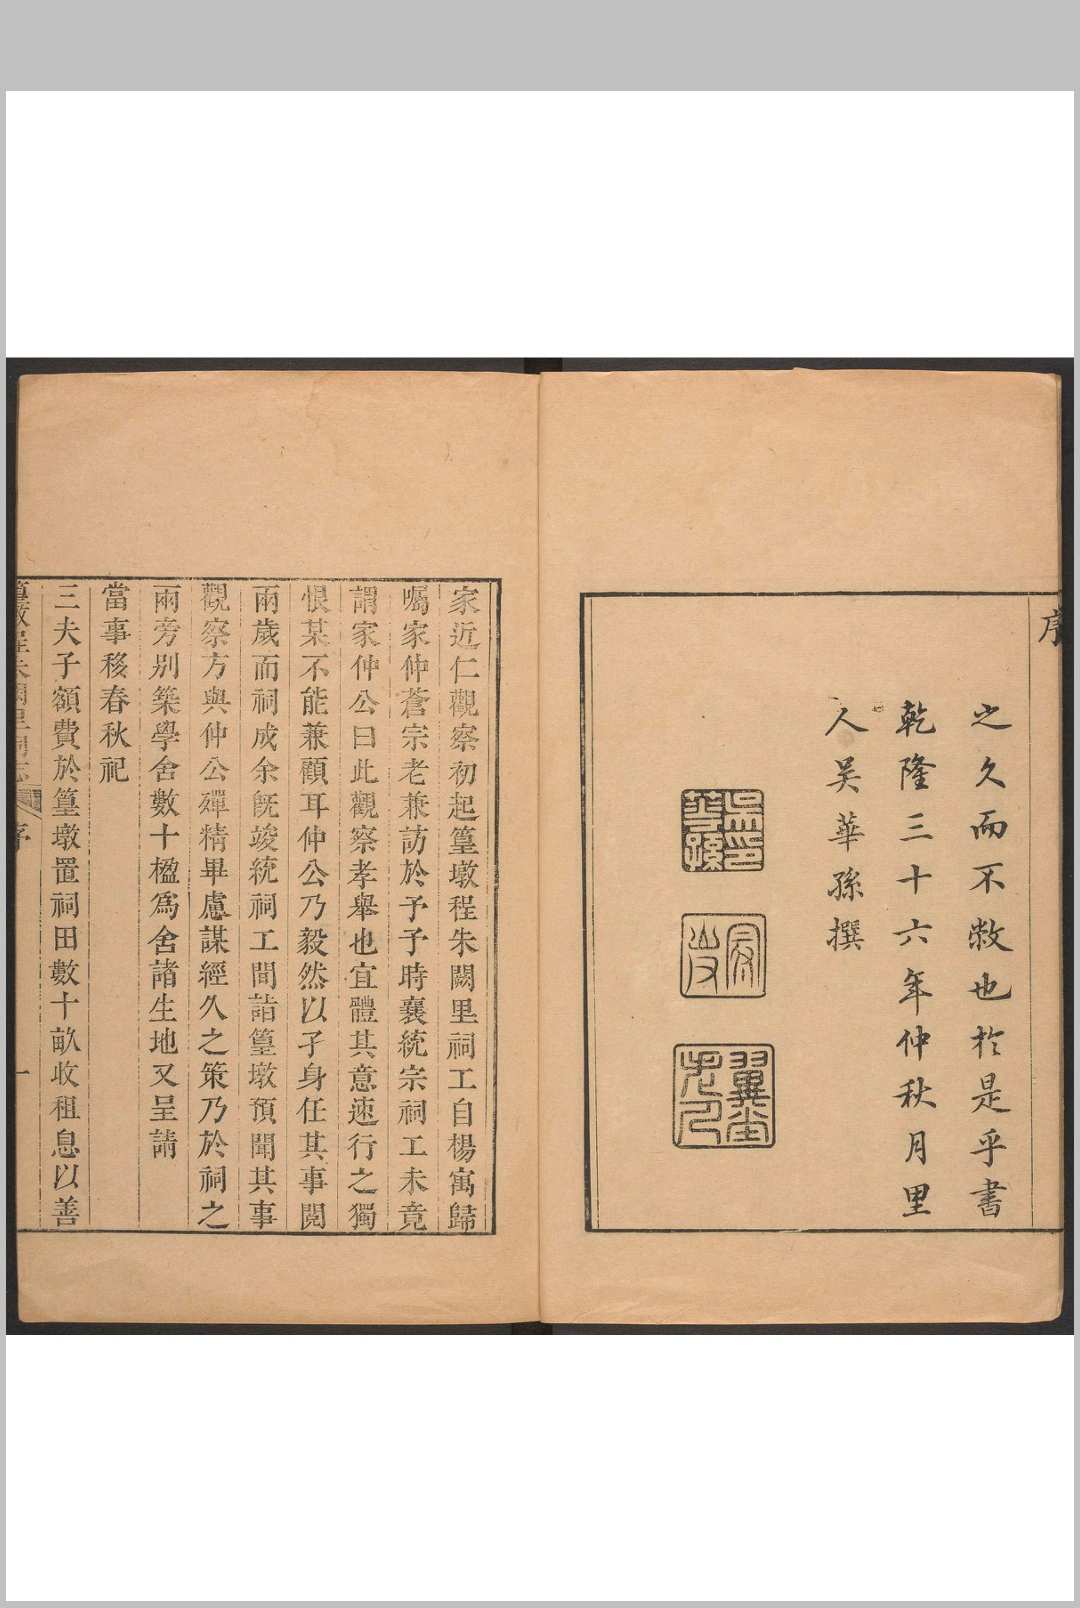 序
之久而不敝也於是乎書
乾隆三十六年仲秋月里
人吴華孫撰
吳華孫印
翼堂
家近仁觀察初起篁墩程朱闕里祠工自楊寓歸
囑家仲蒼宗老兼訪於予予時襄統宗祠工未竟
謂家仲公曰此觀察孝舉也宜體其意速行之獨
恨某不能兼顧耳仲公乃毅然以孑身任其事閱
兩歲而祠成余旣竣統祠工間詣篁墩預聞其事
觀察方與仲公殫精畢慮謀經久之策乃於祠之
兩旁別築學舍數十楹爲舍諸生地又呈請
當事移春秋祀
三夫子額費於篁墩置祠田數十畝收租息以善
篁墩程朱闕里祠志
序
一